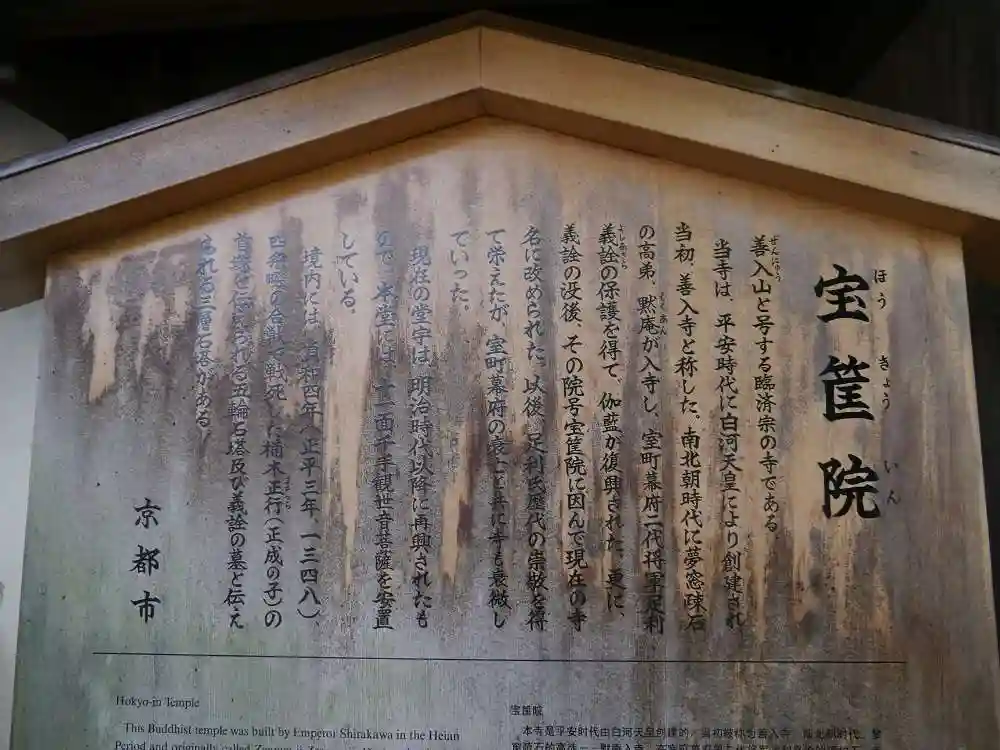 宝筐院
ほうきょういん
善入山と号する臨済宗の寺である。
ぜんにゅう
当寺は、平安時代に白河天皇により創建され
当初、善入寺と称した。南北朝時代に夢窓疎石
の高弟、黙庵が入寺し、室町幕府二代将軍足利
もくあん
義詮の保護を得て、伽藍が復興された。更に、
よしあきら
義詮の没後、その院号宝筐院に因んで現在の寺
名に改められた。以後、足利氏歴代の崇敬を得
て栄えたが、室町幕府の衰亡と共に寺も衰微し
ていった。
現在の堂宇は、明治時代以降に再興されたも
ので、本堂には、十一面千手観世音菩薩を安置
している。
境内には、貞和四年(正平三年、一三四八)、
四条畷の合戦で戦死した楠木正行(正成の子)の
まさつら
首塚と伝えられる五輪石塔及び義詮の墓と伝え
られる三層石塔がある。
京都市
Hokyo-in Temple
This Buddhist temple was built by Emperor Shirakawa in the Heian
Period and originally called
宝筐院
本寺是平安时代由白河天皇创建的，当初被称为善入寺，